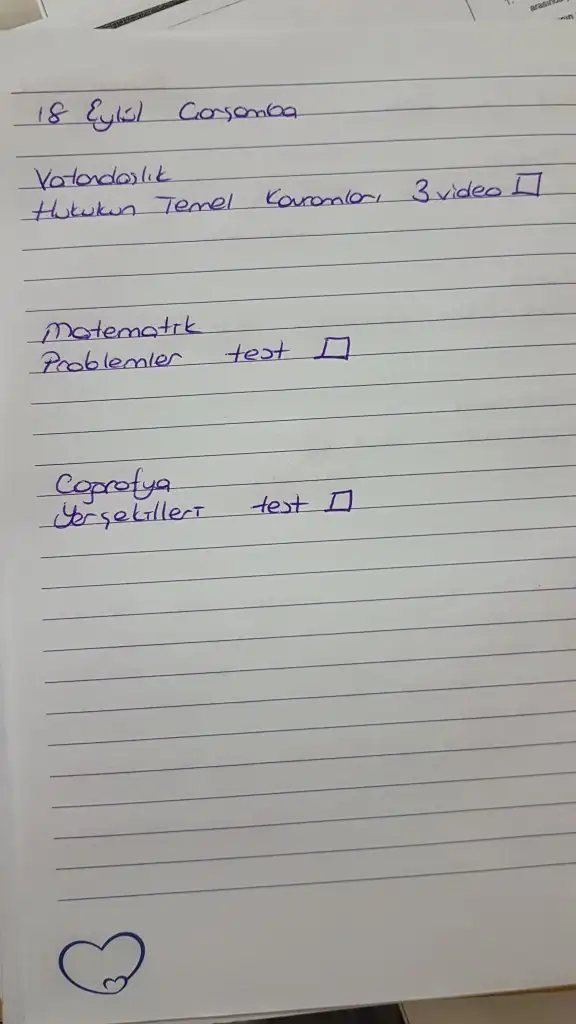 18 Eylül Çarşamba
Vatandaşlık
Hukukun Temel Kavramları 3 video
Matematik
Problemler test
Coğrafya
Yerşekilleri test